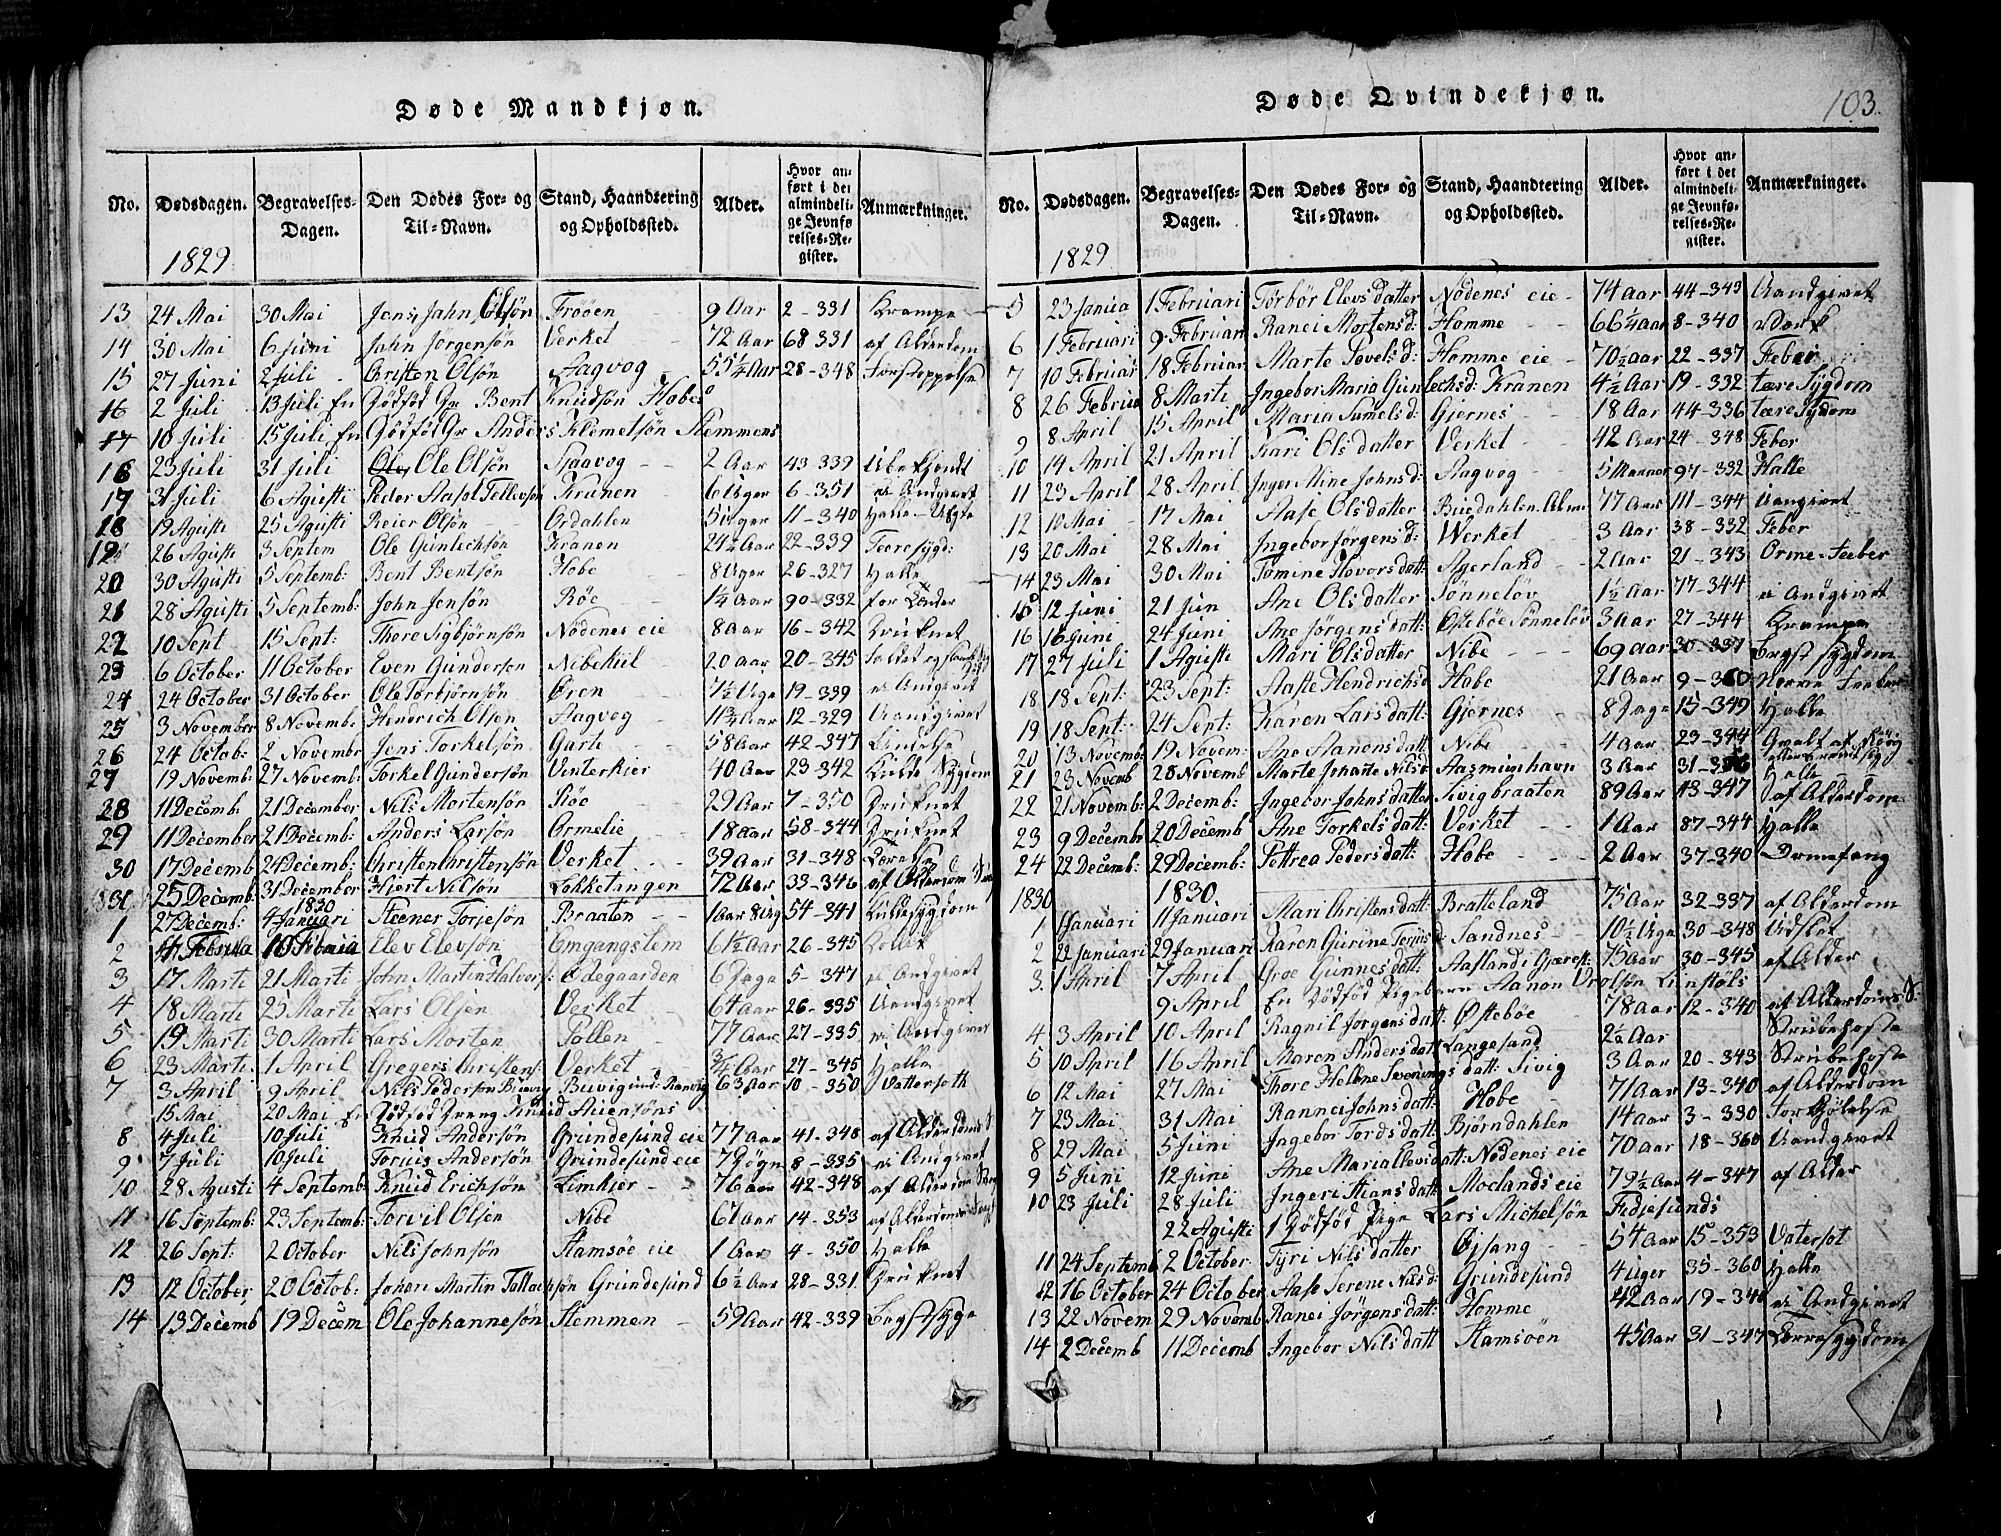 Døde Mandkjøn.
No. Dødsdagen. Begravelses-Dagen. Den Dødes For- og Til-Navn. Stand, Haandtering og Opholdssted. Alder. Hvor anført i det almindelige Jevnførelses-Register. Anmærkninger.
1829
13 24 Mai 30 Mai Jens Jahn Olsön Frööen 9 Aar 2-331 Krampe
14 30 Mai 6 Juni John Jörgensön Verket 72 Aar 68 331 af Alderdom
15 27 Juni 2 Juli Christen Olsön Aagvog 55 1/2 Aar 28-348 Forstoppelse
16 2 Juli 13 Juli En Dödföd Gr Bent Knudsön Hobe
17 10 Juli 15 Juli En Dödföd Gr Anders Klemetsön Stemmens
16 23 Juli 31 Juli Ole Olsön 2 Aar 43-339 Ubekjendt
17 31 Juli 6 Agusti Peder Aasol Tellevsön Kranen 6 Uger 6-351 ei Andgivet
18 19 Agusti 25 Agusti Reier Olsön Ordahlen 5 uger 11-340
19 26 Agusti 3 Septem Ole Gunlechsön Kranen 24 1/2 Aar 22-339 Tæresygd:
20 30 Agusti 5 Septemb: Bent Bentsön Hobe 8 Uger 26-327 Halle
21 28 Agusti 5 Septemb: John Jensön Röe 1/4 Aar 90-332
22 10 Sept 15 Sept: Thore Sigbjörnsön Nödenes eie 8 Aar 16-342 Druknet
23 6 October 11 October Even Gundersen Nibekiil 20 aar 20-345
24 24 October 31 October Ole Torbjörnsön Ören 7 1/2 Uge 19-339 ei Andgivet
25 3 November 8 Novembr Hendrich Olsen Aagvog 11 3/4 Aar 12-329 Uandgivet
26 24 Octob: 2 Novembr Jens Torkelsön Garte 58 Aar 42-347
27 19 Novemb: 27 Novemb: Torkel Gundersön Vinterkier 40 Aar 23-342
28 11 Decemb 21 December Nils Mortensön Röe 29 Aar 7-350 Druknet
29 11 December 21 Decemb: Anders Larsön Ormelie 18 aar 58-344 Druknet
30 17 Decemb 24 Decemb: Christen Christensön Verket 39 Aar 31-348
31 25 Decemb: 31 December Hjert Nilsön Lokketangen 72 Aar 33-346 af Alderdom
1830
1 27 Decemb: 4 Januari Steener Torjesön Braaten 1 Aar 8 Ug 54-341
2 4 Februa 10 Februa Elev Elevsön Omgangslem 61 1/2 Aar 26-345
3 17 Marti 21 Marti John Martin Halvors: Ödegaarden 6 Dage 5-347 ei Andgivet
4 18 Marti 25 Marti Lars Olsen Verket 64 aar 26-335 Uandgivet
5 19 Marti 30 Marti Lars Morten Pollen 77 Aar 27-335 ei Andgivet
6 23 Marti 1 April Gregers Christens: Verket 3/4 Aar 27-345 Halle
7 3 April 9 April Nils Pedersen Buvig Buvig und: Ranvig 63 Aar 10-350 Vattersoth
15 Mai 20 Mai En Dödföd Dreng Knud Aiensöns
8 4 Juli 10 Juli Knud Andersön Grundesund eie 77 Aar 41-348 af Alderdoms S
9 7 Juli 10 Juli Torjus Andersön Grundesund eie 7 Dögn 8-335 ei Andgivet
10 28 Agusti 4 Septemb: Knud Erichsön Limkier 76 aar 42-348 af Alderdom
11 16 Septemb: 23 Septemb: Torvil Olsen Nibe 61 Aar 14-353 af Alderdoms
12 26 Sept: 2 October Nils Johnsön Stamsöe eie 1 Aar 4-350 Halle
13 12 October 20 Octob: Johan Martin Tallachsön Grundesund 6 1/2 Aar 28-331 Druknet
14 13 Decemb 19 Decem Ole Johannesön Stemmen 59 Aar 42-339 Brystsyge
Døde Qvindekjøn.
103
No. Dødsdagen. Begravelses-Dagen. Den Dødes For- og Til-Navn. Stand, Haandtering og Opholdssted. Alder. Hvor anført i det almindelige Jevnførelses-Register. Anmærkninger.
1829
5 23 Janua 1 Februari Torbör Elevsdatter Nödenes eie 74 aar 44-343 Uandgivet
6 1 Februari 9 Februari Ranei Mortensd: Homme 66 1/4 aar 8-340
7 10 Februar 18 Februar Marte Povelsd: Homme eie 70 1/2 aar 22-337 Feber
8 26 Februa 8 Marti Ingebor Maria Gunlechsd: Kranen 4 1/2 Aar 19-332 tære Sygdom
9 8 April 15 April Maria Samelsd: Gjernes 18 Aar 44-336 tære Sygdom
10 14 April 21 April Kari Olsdatter Verket 42 Aar 24-348 Feber
11 23 April 28 April Inger Mine Johnsd: Aagvog 5 Maaner 97-332 Halle
12 10 Mai 17 Mai Aase Olsdatter 77 Aar 111-344 Uangivet
13 20 Mai 28 Mai Ingebor Jörgensd: Werket 3 Aar 38-332 Feber
14 23 Mai 30 Mai Tomine Hovorsdatt: Agerland 2 aar 21-343 Orme-Feeber
15 12 Juni 21 Jun Ane Olsdatter Sönnelöv 1 1/2 Aar 77-344 ei Andgivet
16 16 Juni 24 Juni Ane Jörgensdatt: Östeböe Sönnelöv 3 Aar 27-344 Krampe
17 27 Juli 1 Agusti Mari Olsdatter Nibe 69 Aar 30-337 Brystsygdom
18 18 Sept: 23 Sept: Aaste Hendrichsd Hobe 21 Aar 9-360 Nerve Feeber
19 18 Sept: 24 Sept: Karen Larsdatt: Gjernes 8 Dage 15-349 Halle
20 13 Novemb: 19 Novem: Ane Aanonsdatt: Nibe 4 Aar 23-344
21 23 Novemb 28 Novemb Marte Johanne Nilsd Aasmunhavn 3 Aar 31-336 Halle
22 21 Novemb: 2 Decemb: Ingebor Johnsdatter Sivigbraaten 89 Aar 43-347 af Alderdom
23 9 Decembr 20 Decemb Ane Torkelsdatt: Verket 1 Aar 87-344 Halle
24 22 Decemb: 29 Decemb: Pettrea Pedersdatt: Hobe 2 Aar 37-340
1830 1830
1 1 Januari 11 Januari Mari Christensdatt: Bratteland 75 Aar 32-337 af Alderdom
2 22 Januari 29 Januari Karen Gurine Terjusd Sandnes 10 1/2 Uge 30-348 Udslet
3 1 April 7 April Groe Gunnesdatt: Aasland i Gjerest: 75 Aar 30-345 af Alder
9 April En Dödföd Pigebarn Aanon Drolsön Linstöls
4 3 April 10 April Ragnil Jörgensdatt: Östeböe 78 aar 12-340 af Alderdoms S:
5 10 April 16 April Maren Andersdatt Langesand 2 1/2 Aar Strubehoste
6 12 Mai 27 Mai Thore Helene Sveningsdatt: Sivig 3 Aar 20-343 Strubehoste
7 23 Mai 31 Mai Rannei Johnsdatt: Hobe 71 Aar 13-340 af Alderdom
8 29 Mai 5 Juni Ingebor Tordsdatt Björndahlen 14 aar 3-330 Forkjölelse
9 5 Juni 12 Juni Ane Maria Olevsdatt: Nödenes eie 70 aar 18-360 Uandgivet
10 23 Juli 28 Juli Ingeri Stiansdatt: Moelands eie 79 1/2 Aar 4-347 af Alder
22 Agusti 1 Dödföd Pige Lars Michelsön Fidjesunds
11 24 Septemb 2 October Tyri Nilsdatter Öysang 54 Aar 15-353 Vatersot
12 16 October 24 October Aase Serene Nilsd: Grundesund 4 Uger 35-360 Halle
13 22 Novem 29 Novemb Ranei Jörgensdatt: Homme 42 Aar 19-340 ei Andgivet
14 2 Decemb 11 Decemb Ingebor Nilsdatt Stamsöen 45 Aar 31-347 Tærresygdom